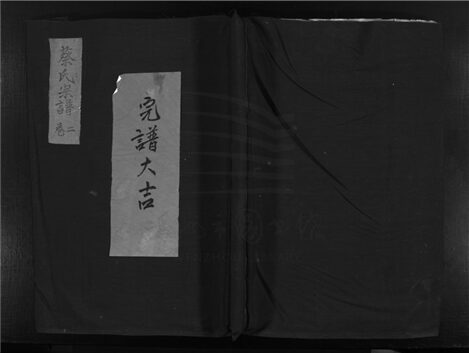 蔡氏宗譜
卷二
完譜大吉